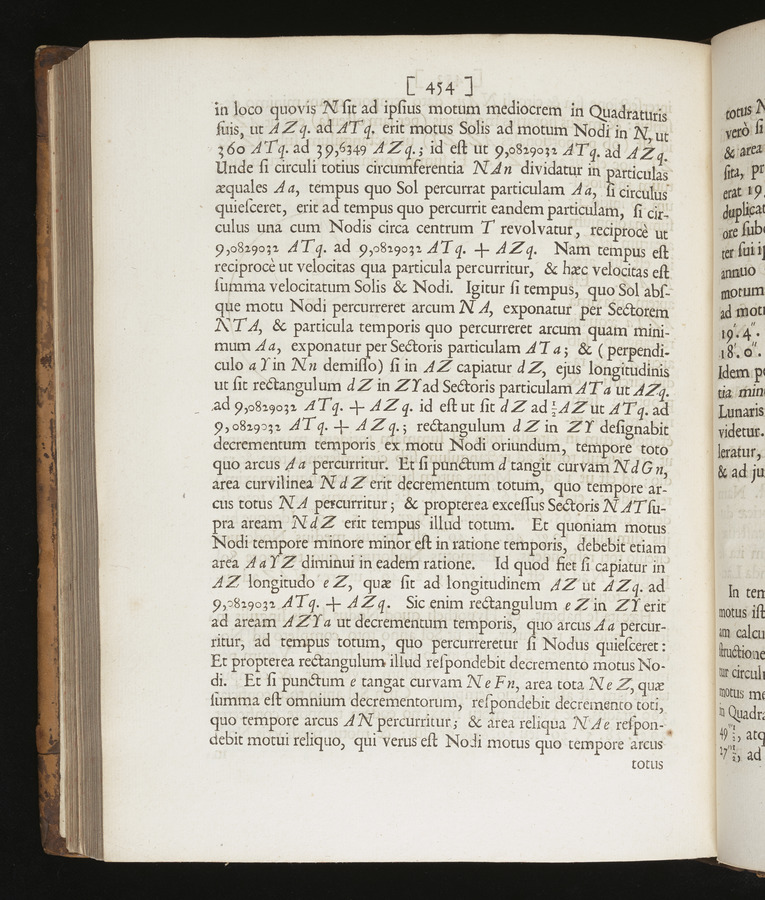 [ 454 ]
in loco quovis N ſit ad ipſius motum mediocrem in Quadraturis
ſuis, ut AZq. ad ATq. erit motus Solis ad motum Nodi in N, ut
360 ATq. ad 39,6349 AZq.; id eſt ut 9,0829032 ATq. ad AZq.
Unde ſi circuli totius circumferentia NAn dividatur in particulas
æquales Aa, tempus quo Sol percurrat particulam Aa, ſi circulus
quieſceret, erit ad tempus quo percurrit eandem particulam, ſi cir-
culus una cum Nodis circa centrum T revolvatur, reciprocè ut
9,0829032 ATq. ad 9,0829032 ATq. + AZq. Nam tempus eſt
reciprocè ut velocitas qua particula percurritur, & hæc velocitas eſt
ſumma velocitatum Solis & Nodi. Igitur ſi tempus, quo Sol abſ-
que motu Nodi percurreret arcum NA, exponatur per Sectorem
NTA, & particula temporis quo percurreret arcum quam mini-
mum Aa, exponatur per Sectoris particulam ATa; & (perpendi-
culo aY in Nn demiſſo) ſi in AZ capiatur dZ, ejus longitudinis
ut ſit rectangulum dZ in ZY ad Sectoris particulam ATa ut AZq.
ad 9,0829032 ATq. + AZq. id eſt ut ſit dZ ad ½AZ ut ATq. ad
9,0829032 ATq. + AZq.; rectangulum dZ in ZY deſignabit
decrementum temporis ex motu Nodi oriundum, tempore toto
quo arcus Aa percurritur. Et ſi punctum d tangit curvam NdGn,
area curvilinea NdZ erit decrementum totum, quo tempore ar-
cus totus NA percurritur; & propterea exceſſus Sectoris NAT ſu-
pra aream NdZ erit tempus illud totum. Et quoniam motus
Nodi tempore minore minor eſt in ratione temporis, debebit etiam
area AaYZ diminui in eadem ratione. Id quod fiet ſi capiatur in
AZ longitudo eZ, quæ ſit ad longitudinem AZ ut AZq. ad
9,0829032 ATq. + AZq. Sic enim rectangulum eZ in ZY erit
ad aream AZYa ut decrementum temporis, quo arcus Aa percur-
ritur, ad tempus totum, quo percurreretur ſi Nodus quieſceret:
Et propterea rectangulum illud reſpondebit decremento motus No-
di. Et ſi punctum e tangat curvam NeFn, area tota NeZ, quæ
ſumma eſt omnium decrementorum, reſpondebit decremento toti,
quo tempore arcus AN percurritur; & area reliqua NAe reſpon-
debit motui reliquo, qui verus eſt Nodi motus quo tempore arcus
totus
totus N
verò ſi
& area
ſita, pr
erat 19,
duplicat
ore ſub
ter ſui i
annuo
motum
ad mot
19'. 4''.
18'. 0''.
Idem p
tia min
Lunaris
videtur.
leratur,
& ad ju
In tem
motus iſt
am calcu
ſtructione
tur circul
motus me
in Quadra
, atq
, ad